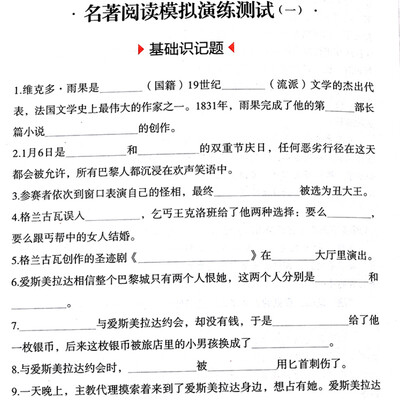 · 名著阅读模拟演练测试(一) ·
基础识记题
1.维克多·雨果是________(国籍)19世纪________(流派)文学的杰出代
表，法国文学史上最伟大的作家之一。1831年，雨果完成了他的第____部长
篇小说____________的创作。
2.1月6日是________和________的双重节庆日，任何恶劣行径在这天
都会被允许，所有巴黎人都沉浸在欢声笑语中。
3.参赛者依次到窗口表演自己的怪相，最终____________被选为丑大王。
4.格兰古瓦误入________，乞丐王克洛班给了他两种选择：要么________，
要么跟丐帮中的女人结婚。
5.格兰古瓦创作的圣迹剧《________________》在________大厅里演出。
6.爱斯美拉达相信整个巴黎城只有两个人恨她，这两个人分别是________和
________。
7.____________与爱斯美拉达约会，却没有钱，于是____________给了他
一枚银币，后来这枚银币被旅店里的小男孩换成了____________。
8.与爱斯美拉达约会时，____________被____________用匕首刺伤了。
9.一天晚上，主教代理摸索着来到了爱斯美拉达身边，想占有她。爱斯美拉达